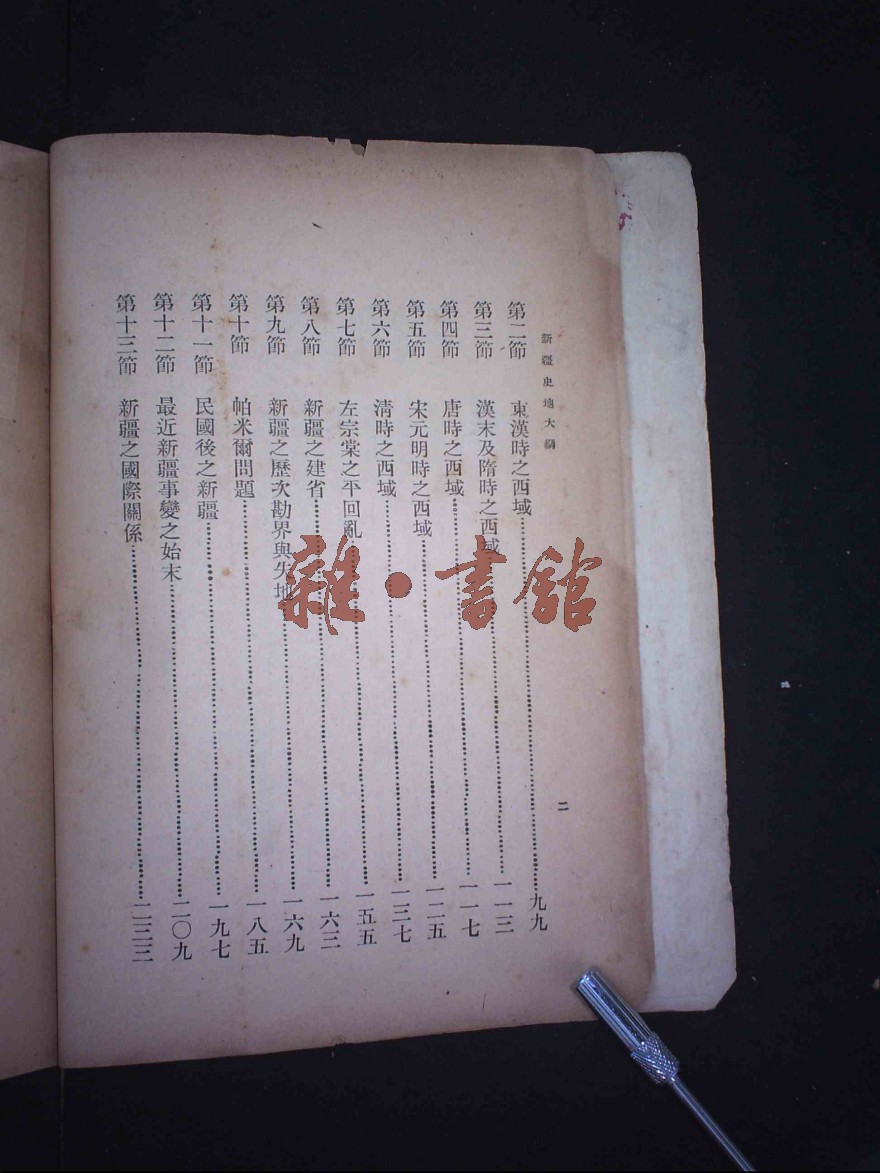 新疆史地大綱
二
第二節 東漢時之西域 九九
第三節 漢末及隋時之西域 一一三
第四節 唐時之西域 一一七
第五節 宋元明時之西域 一二五
第六節 清時之西域 一三七
第七節 左宗棠之平回亂 一五五
第八節 新疆之建省 一六三
第九節 新疆之歷次勘界與失地 一六九
第十節 帕米爾問題 一八五
第十一節 民國後之新疆 一九七
第十二節 最近新疆事變之始末 二〇九
第十三節 新疆之國際關係 二三三
雜·書館